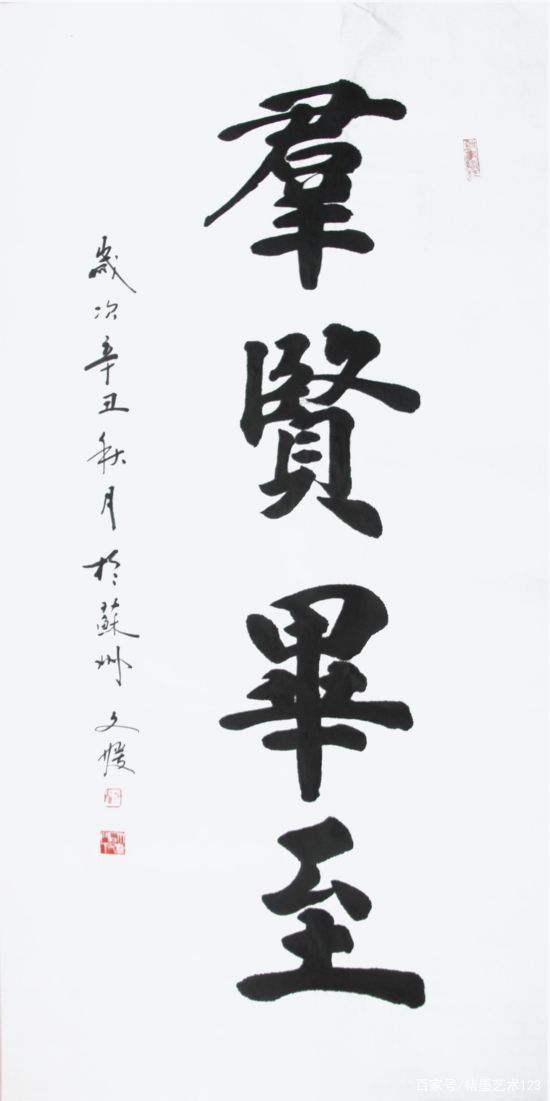 羣賢畢至
歲次辛丑秋月於蘇州 文媛
百家号/楮墨艺术123